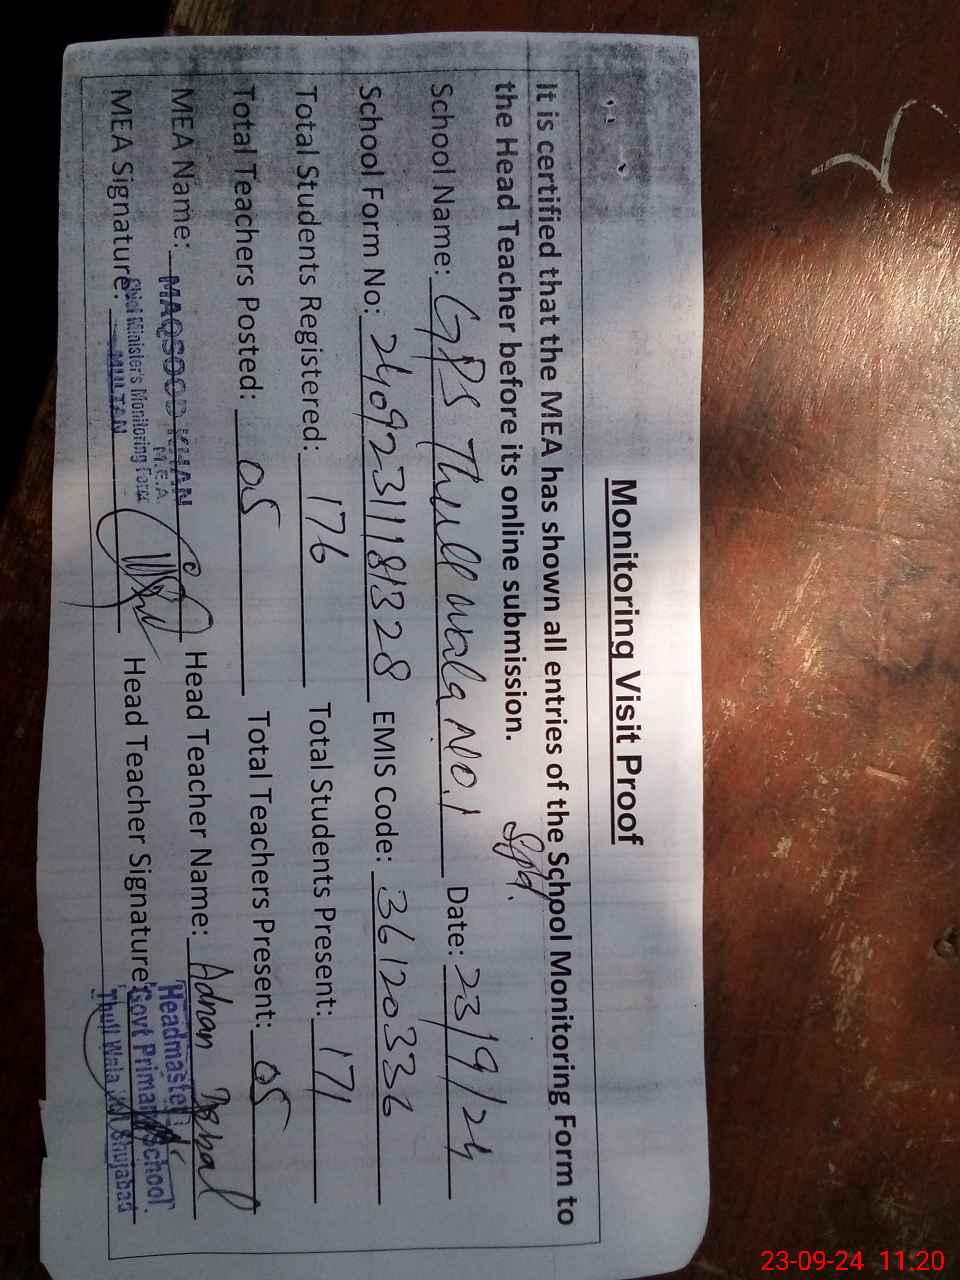 Monitoring Visit Proof
It is certified that the MEA has shown all entries of the School Monitoring Form to
the Head Teacher before its online submission.
School Name: GPS Thull wala No.1 Sjbd. Date: 23/9/24
School Form No: 2409231181328 EMIS Code: 36120336
Total Students Registered: 176 Total Students Present: 171
Total Teachers Posted: 05 Total Teachers Present: 05
MEA Name: MAQSOOD KHAN Head Teacher Name: Adnan Iqbal
M.E.A.
Chief Minister's Monitoring Force
MEA Signature: MULTAN Head Teacher Signature:
Headmaster
Govt Primary School
Thull Wala No.1 Shujabad
23-09-24 11:20